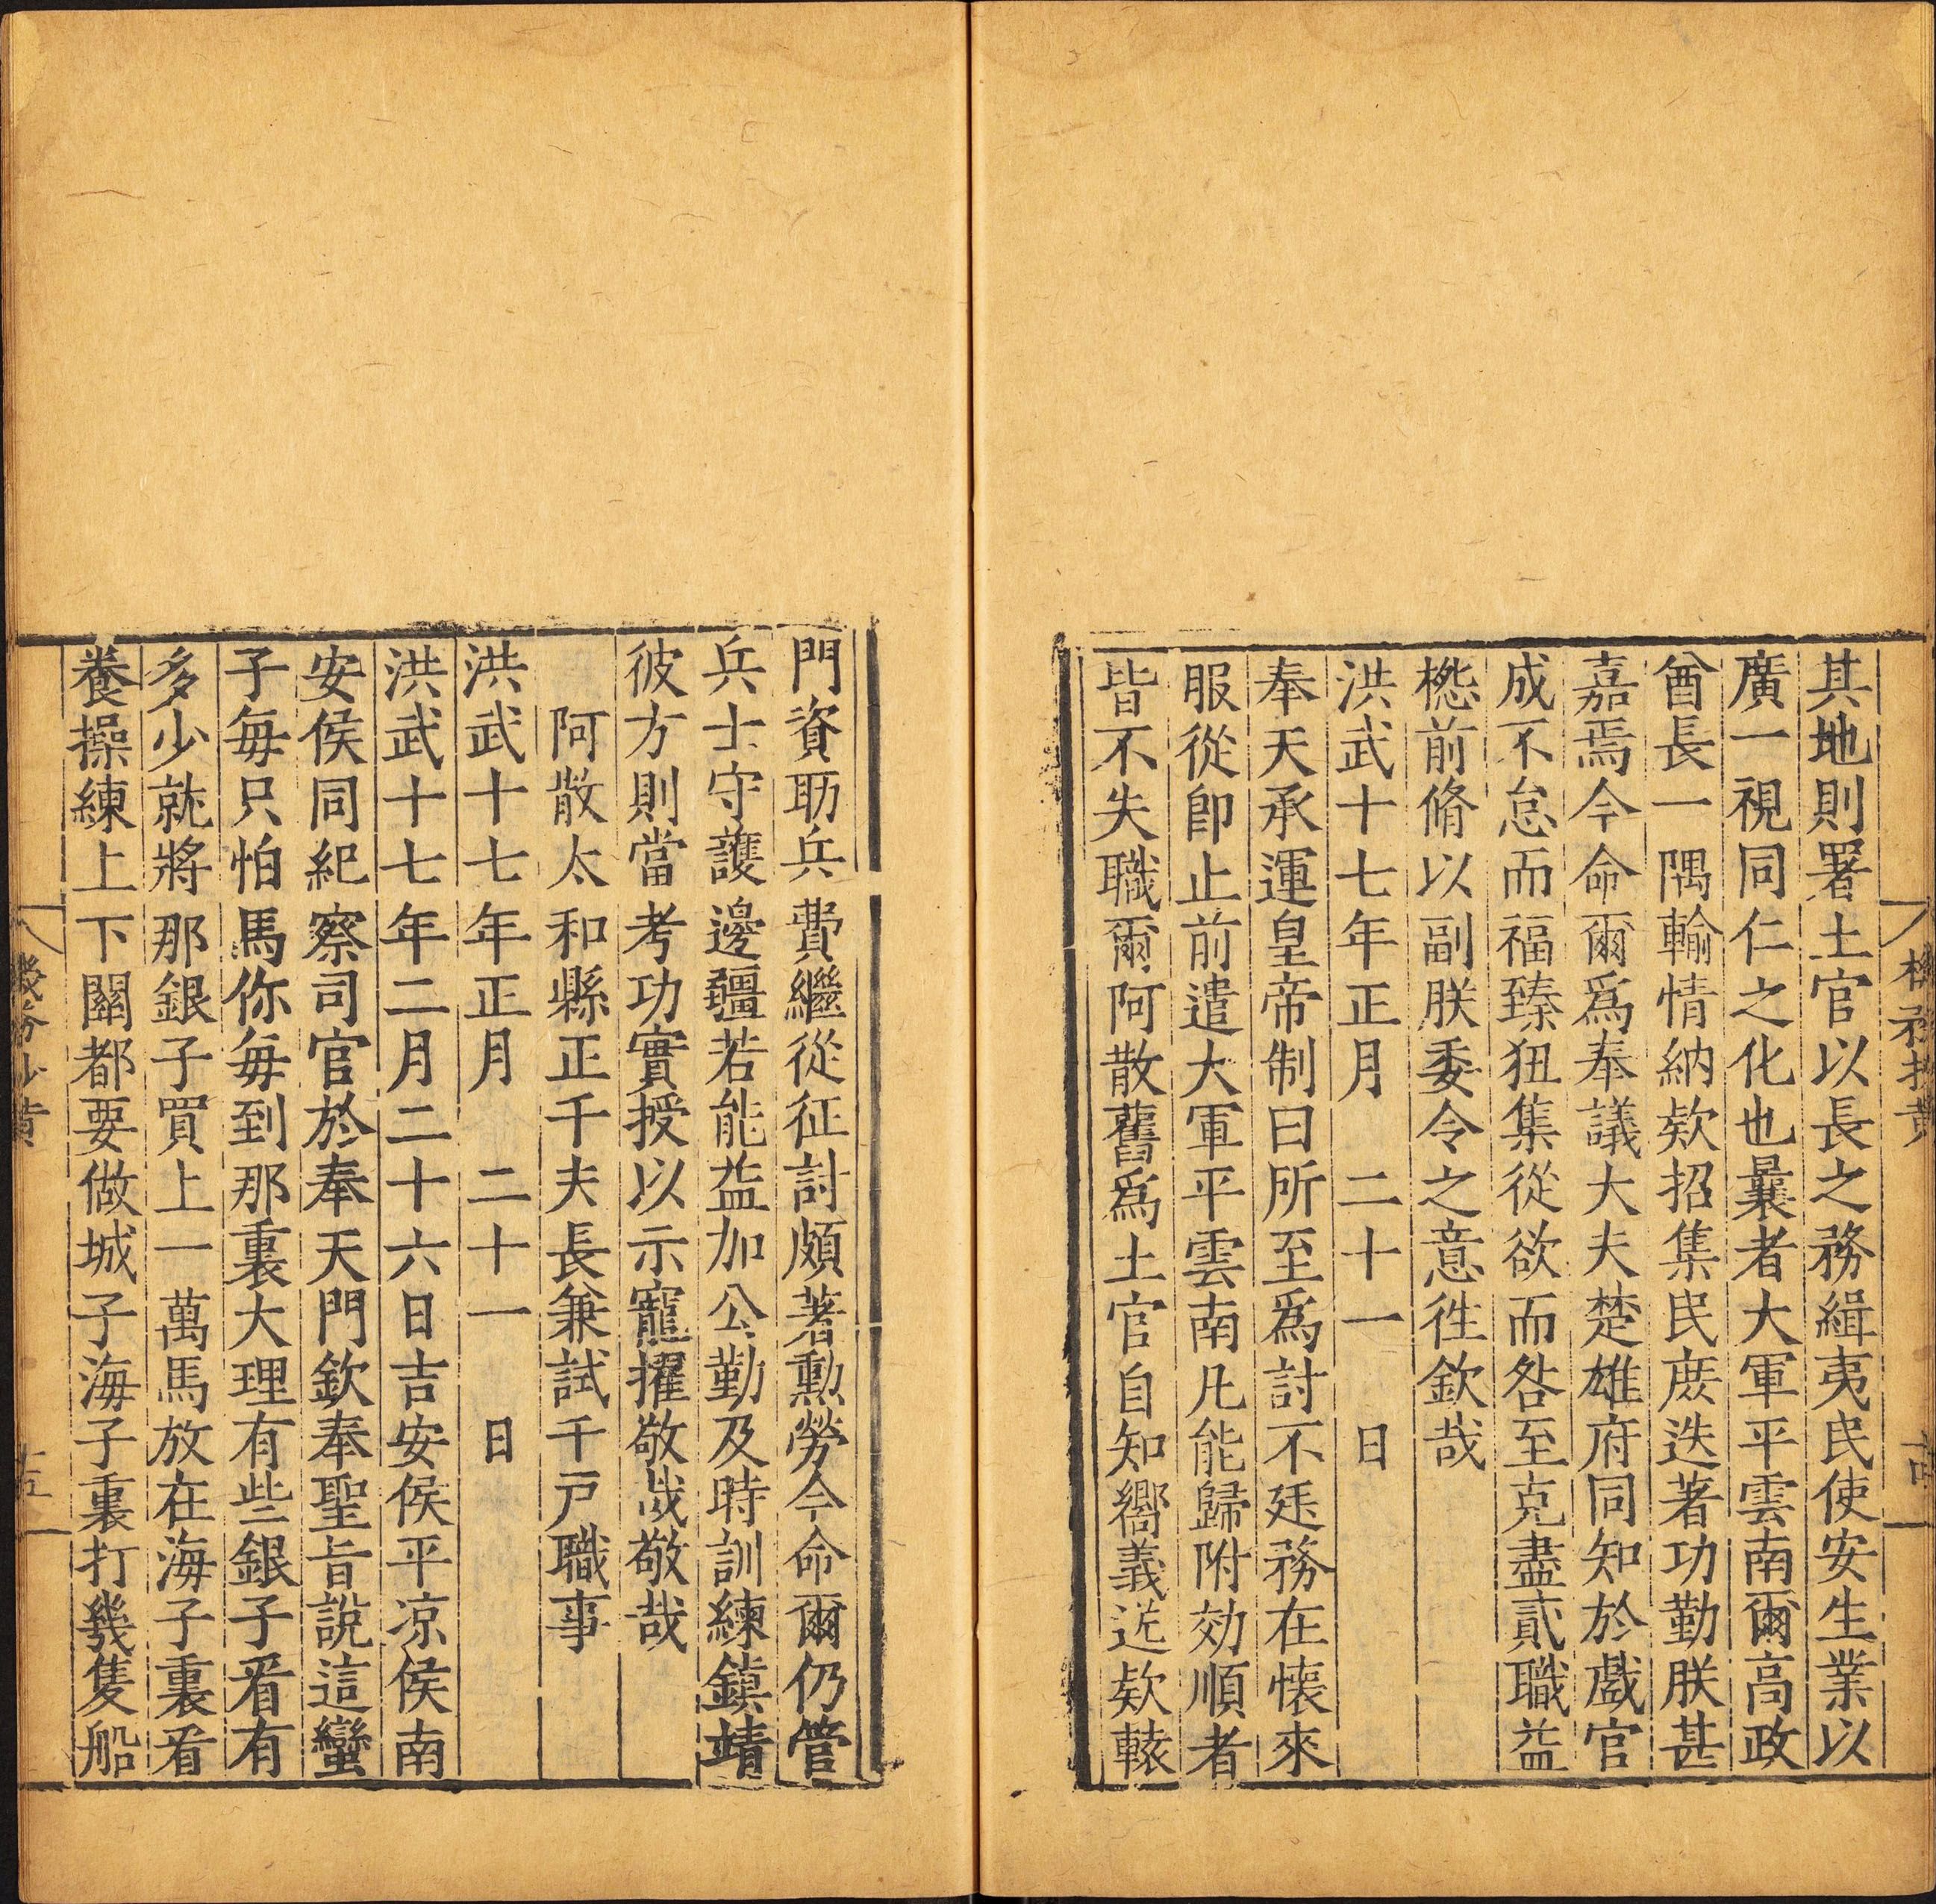 其地則署土官以長之務緝夷民使安生業以
廣一視同仁之化也曩者大軍平雲南爾高政
酋長一隅輸情納欵招集民庻迭著功勤朕甚
嘉焉今命爾爲奉議大夫楚雄府同知於戲官
成不怠而福臻狃集從欲而咎至克盡貳職益
楙前脩以副朕委令之意徃欽哉
洪武十七年正月 二十一 日
奉天承運皇帝制曰所至爲討不廷務在懷來
服從卽止前遣大軍平雲南凡能歸附効順者
皆不失職爾阿散舊爲土官自知嚮義送欵轅
門資助兵費繼從征討頗著勲勞今命爾仍管
兵士守護邊疆若能益加公勤及時訓練鎮靖
彼方則當考功實授以示寵擢敬哉敬哉
阿散太和縣正千夫長兼試千戸職事
洪武十七年正月 二十一 日
洪武十七年二月二十六日吉安侯平凉侯南
安侯同紀察司官於奉天門欽奉聖旨說這蠻
子每只怕馬你每到那裏大理有些銀子看有
多少就將那銀子買上一萬馬放在海子裏看
養操練上下關都要做城子海子裏打幾隻船